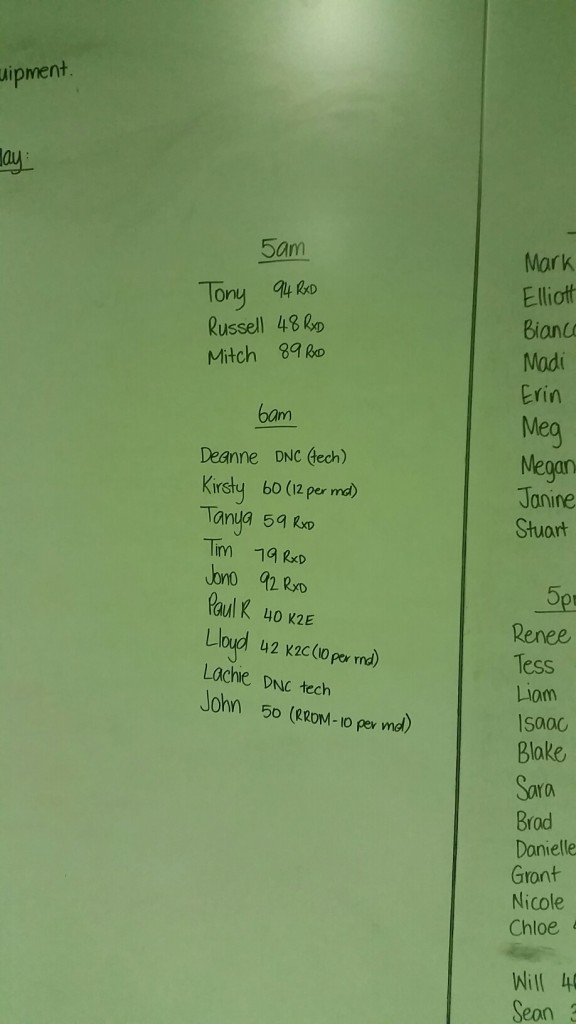 uipment.
lay:
5am
Tony 94 RxD
Russell 48 RxD
Mitch 89 RxD
6am
Deanne DNC (tech)
Kirsty 60 (12 per rnd)
Tanya 59 RxD
Tim 79 RxD
Jono 92 RxD
Paul R 40 K2E
Lloyd 42 K2C (10 per rnd)
Lachie DNC tech
John 50 (RROM-10 per rnd)
Mark
Elliott
Bianc
Madi
Erin
Meg
Megan
Janine
Stuart
5p
Renee
Tess
Liam
Isaac
Blake
Sara
Brad
Danielle
Grant
Nicole
Chloe
Will 4
Sean 3